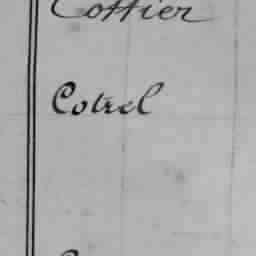 Cottier
Cotrel